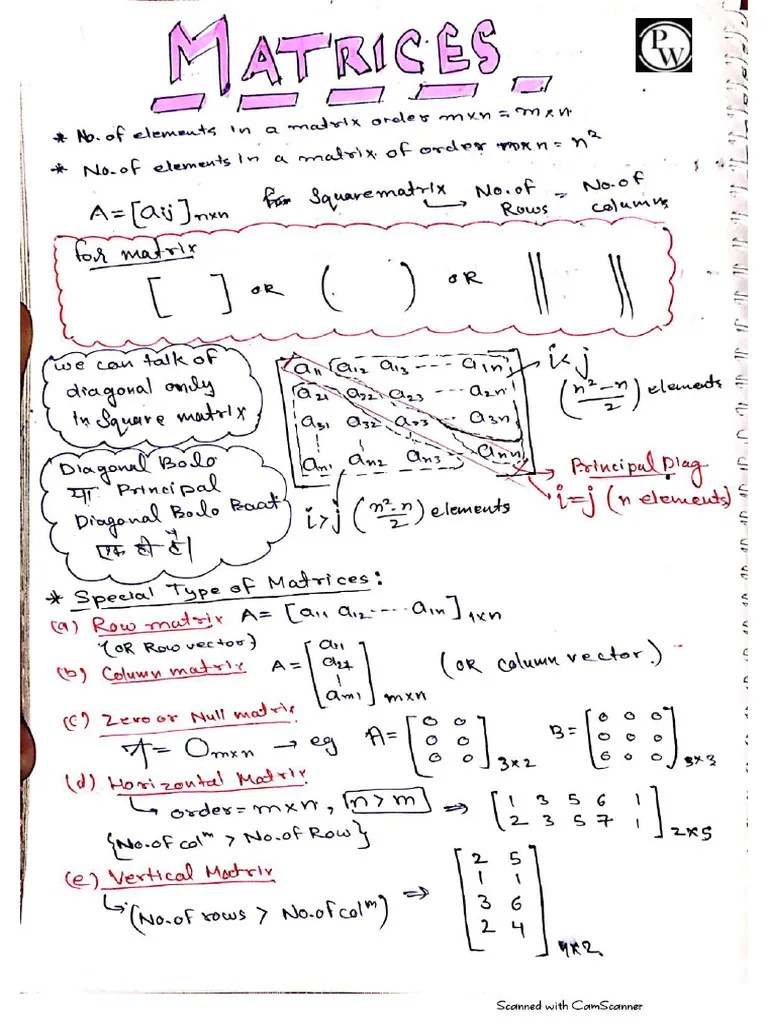 MATRICES
PW
* No. of elements in a matrix order m×n = m×n.
* No. of elements in a matrix of order n×n = n²
A = [aij]n×n for Square matrix → No. of Rows = No. of columns
for matrix
[ ] OR ( ) OR || ||
we can talk of
diagonal only
in Square matrix
a11 a12 a13 ---- a1n
a21 a22 a23 ---- a2n
a31 a32 a33 ---- a3n
an1 an2 an3 ---- ann
i<j
(n²-n/2) elements
Principal Diag
i=j (n elements)
i>j (n²-n/2) elements
Diagonal Bolo
या Principal
Diagonal Bolo Baat
एक ही है।
* Special Type of Matrices:
(a) Row matrix A = [a11 a12 ---- a1n]1×n
(OR Row vector)
(b) Column matrix A = [a11 a21 | am1]m×n (OR Column vector.)
(c) Zero or Null matrix
A = Om×n → eg A = [0 0
0 0
0 0]3×2 B = [0 0 0
0 0 0
0 0 0]3×3
(d) Horizontal Matrix
↳ order = m×n, n>m ⇒ [1 3 5 6 1
2 3 5 7 1]2×5
{No. of colm > No. of Row}
(e) Vertical Matrix
↳ (No. of rows > No. of colm) ⇒ [2 5
1 1
3 6
2 4]4×2
Scanned with CamScanner